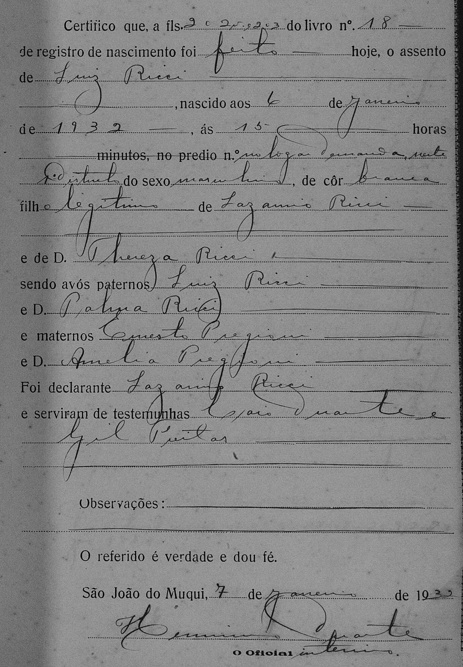 Certifico que, a fls. 202 do livro nº. 18
de registro de nascimento foi feito hoje, o assento
de Luiz Ricci
, nascido aos 6 de Janeiro
de 1932, ás 15 horas
minutos, no predio n.º no logar demanda, neste
Districto do sexo masculino, de côr branca
filho legitimo de Lazarino Ricci
e de D. Thereza Ricci
sendo avós paternos Luiz Ricci
e D. Palma Ricci
e maternos Ernesto Pregioni
e D. Amelia Pregioni
Foi declarante Lazarino Ricci
e serviram de testemunhas Duarte e
Gil
Observações:
O referido é verdade e dou fé.
São João do Muqui, 7 de Janeiro de 1932
Duarte
O Oficial interino.